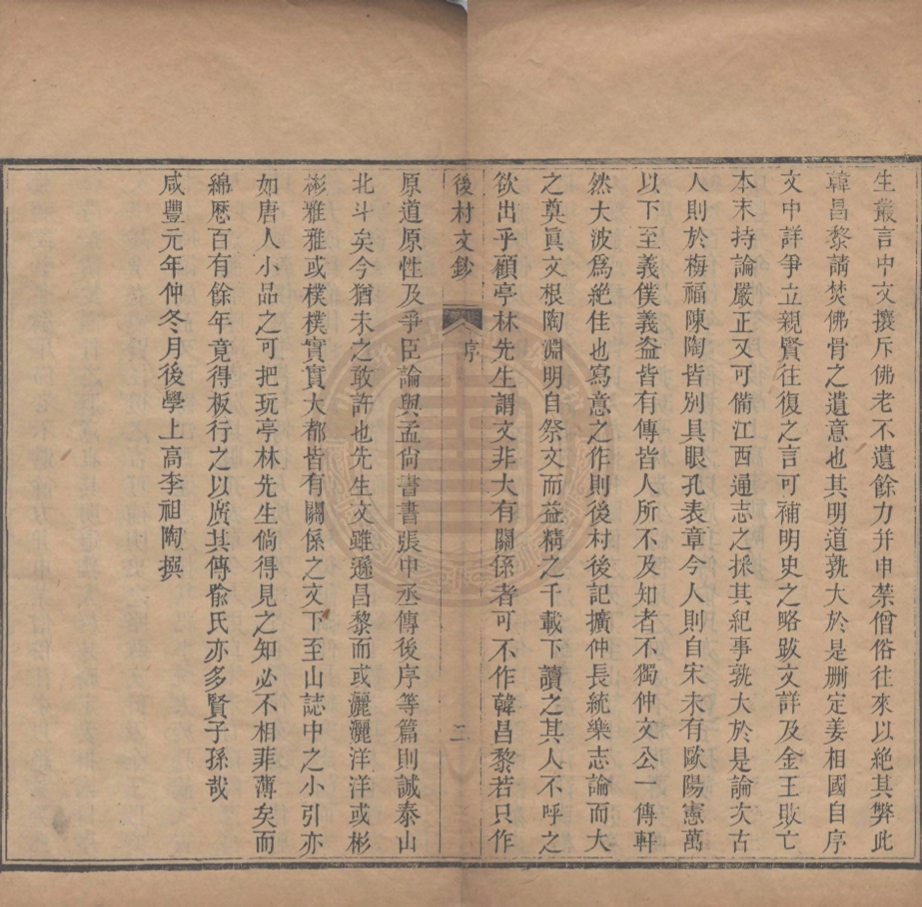 生叢言中文攘斥佛老不遺餘力幷申禁僧俗往來以絕其弊此
韓昌黎請焚佛骨之遺意也其明道孰大於是刪定姜相國自序
文中詳爭立親賢往復之言可補明史之略跋文詳及金王敗亡
本末持論嚴正又可備江西通志之採其紀事孰大於是論次古
人則於梅福陳陶皆別具眼孔表章今人則自宋未有歐陽憲萬
以下至義僕義盜皆有傳皆人所不及知者不獨仲文公一傳軒
然大波爲絕佳也寫意之作則後村後記擴仲長統樂志論而大
之奠眞文根陶淵明自祭文而益精之千載下讀之其人不呼之
欲出乎顧亭林先生謂文非大有關係者可不作韓昌黎若只作
後村文鈔 序 二
原道原性及爭臣論與孟尙書書張中丞傳後序等篇則誠泰山
北斗矣今猶未之敢許也先生文雖遜昌黎而或灑灑洋洋或彬
彬雅雅或樸樸實實大都皆有關係之文下至山誌中之小引亦
如唐人小品之可把玩亭林先生倘得見之知必不相菲薄矣而
綿歷百有餘年竟得板行之以廣其傳喩氏亦多賢子孫哉
咸豐元年仲冬月後學上高李祖陶撰